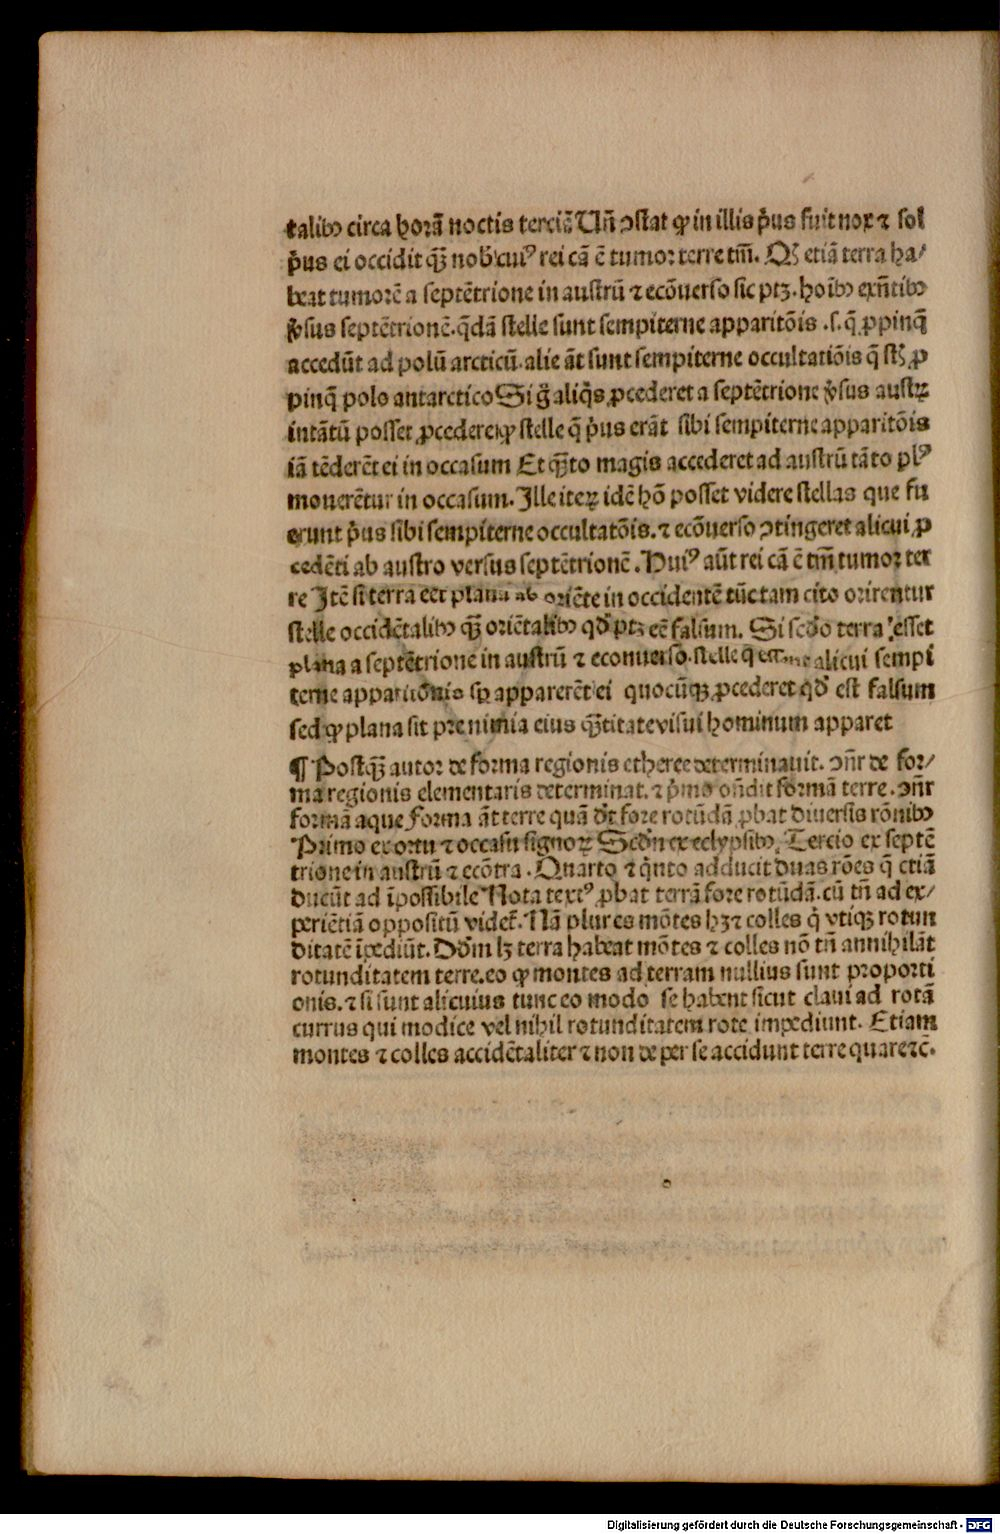 talibꝰ circa horā noctis terciē Uñ ɔstat ꝙ in illis p̉us fuit nox ⁊ sol
p̉us ei occidit qꝫ̄ nob̄ cuiꝰ rei cā ē tumor terre tm̄. Qꝫ etiā terra ha⸗
beat tumorē a septētrione in austrū ⁊ ecōuerso sic ptꝫ. hoibꝰ exñtibꝰ
v̉sus septētrionē. q̄dā stelle sunt sempiterne apparitōis .s. q̄ ꝓpinq̄
accedūt ad polū arcticū. alie āt sunt sempiterne occultatiōis q̄ st̄ ꝓ
pinq̄ polo antarctico Si g̊ aliq̇s ꝓcederet a septētrione v̉sus austꝝ
intātū posset ꝓcedere ꝙ stelle q̄ p̉us erāt sibi sempiterne apparitōis
iā tēderēt ei in occasum Et qꝫ̄to magis accederet ad austrū tāto plꝰ
mouerētur in occasum. Ille iteꝝ idē hō posset videre stellas que fu
erunt p̉us sibi sempiterne occultatōis. ⁊ ecōuerso ɔtingeret alicui ꝓ
cedēti ab austro versus septētrionē. Huiꝰ aūt rei cā ē tm̄ tumor ter
re Itē si terra eēt plana ab oriēte in occidentē tūc tam cito orirentur
stelle occidētalibꝰ qꝫ̄ oriētalibꝰ qd̄ ptꝫ eē falsum. Si secd̄o terra esset
plana a septētrione in austrū ⁊ econuerso. stelle q̄ alicui sempi
terne apparitiōnis sꝑ apparerēt ei quocūqꝫ ꝓcederet qd̄ est falsum
sed ꝙ plana sit pre nimia eius qꝫ̄titate visui hominum apparet
¶ Postqꝫ̄ autor de forma regionis etheree determinauit. ɔñr de for⸗
ma regionis elementaris determinat. ⁊ p̉mo oñdit formā terre. ɔñr
formā aque Forma āt terre quā dꝛ̄ fore rotūdā ꝓbat diuersis rōnibꝰ
Primo ex ortu ⁊ occasu signoꝝ Scd̄o ex eclypsibꝰ. Tercio ex septē
trione in austrū ⁊ ecōtra. Quarto ⁊ q̇nto adducit duas rōes q̄ etiā
ducūt ad īpossibile Nota textꝰ ꝓbat terrā fore rotūdā. cū tñ ad ex⸗
periētiā oppositū videt̄. Nā plures mōtes hꝫ ⁊ colles q̇ vtiqꝫ rotun
ditatē īpediūt. Dd̄m lꝫ terra habeat mōtes ⁊ colles nō tñ annihilāt
rotunditatem terre. eo ꝙ montes ad terram nullius sunt proporti
onis. ⁊ si sunt alicuius tunc eo modo se habent sicut claui ad rotā
currus qui modice vel nihil rotunditatem rote impediunt. Etiam
montes ⁊ colles accidētaliter ⁊ non de per se accidunt terre quare ⁊c̄.
Digitalisierung gefördert durch die Deutsche Forschungsgemeinschaft - DFG